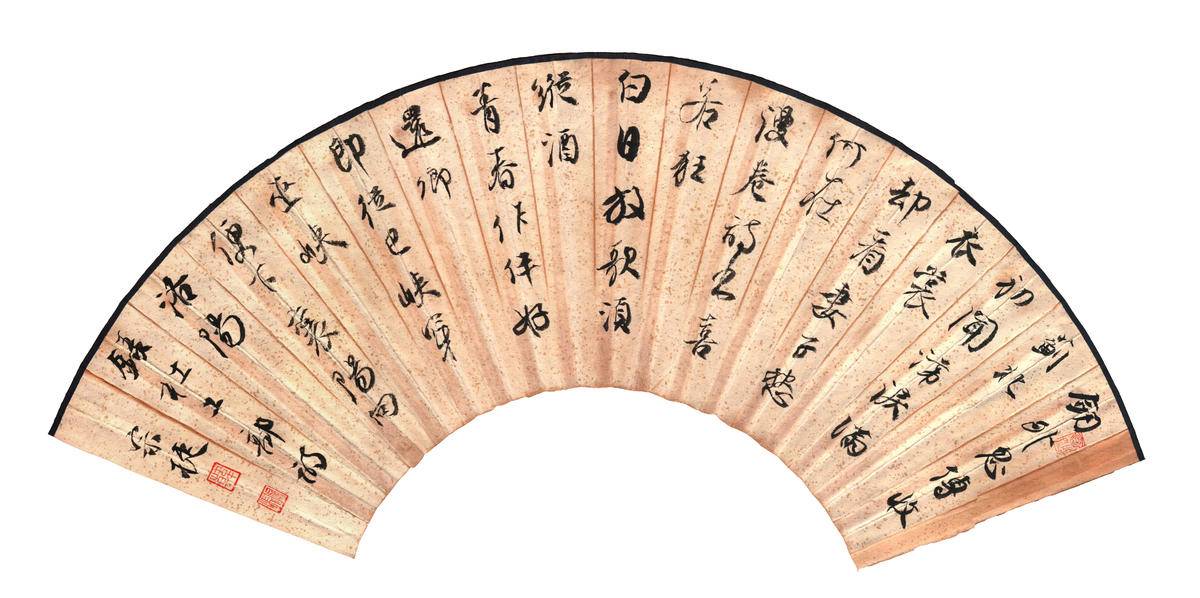 劍外忽傳收
薊北
初聞涕淚滿
衣裳
却看妻子愁
何在
漫卷詩書喜
若狂
白日放歌須
縱酒
青春作伴好
還鄉
即從巴峽穿
巫峽
便下襄陽向
洛陽
錄杜工部詩